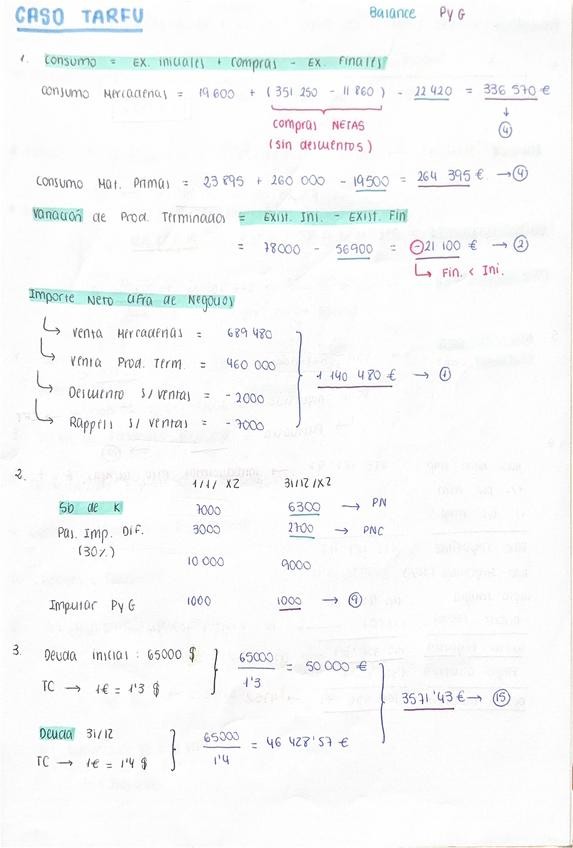 CASO TARFU
Balance PyG
1. Consumo = Ex. iniciales + Compras - Ex. Finales
Consumo Mercaderías = 19 600 + (351 250 - 11 860) - 22 420 = 336 570 €
↓
④
compras NETAS
(sin descuentos)
Consumo Mat. Primas = 23 895 + 260 000 - 19500 = 264 395 € → ④
Variación de Prod. Terminados = Exist. Ini. - Exist. Fin
= 78000 - 56900 = -21 100 € → ②
↳ Fin. < Ini.
Importe Neto Cifra de Negocios
↳ Venta Mercaderías = 689 480
↳ Venta Prod. Term. = 460 000
1 140 480 € → ①
↳ Descuento s/ ventas = - 2000
↳ Rappels s/ ventas = - 7000
2.
1/1/ X2 31/12/X2
Sb de K 7000 6300 → PN
Pas. Imp. Dif. 3000 2700 → PNC
(30%)
10 000 9000
Imputar PyG 1000 1000 → ⑨
3. Deuda inicial : 65000 $ } 65000 / 1'3 = 50 000 €
TC → 1€ = 1'3 $
3571'43 € → ⑮
Deuda 31/12 } 65000 / 1'4 = 46 428'57 €
TC → 1€ = 1'4 $